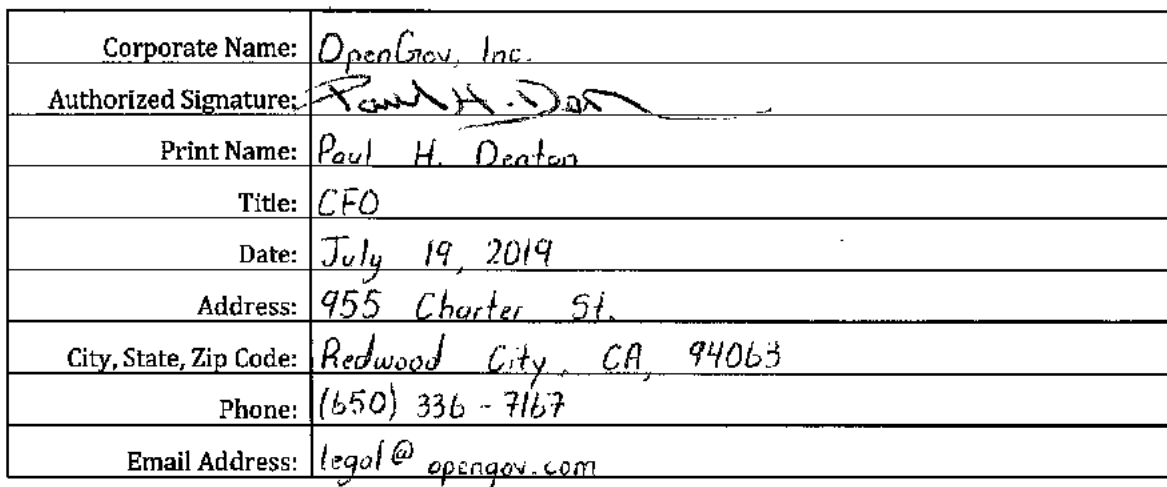 Corporate Name: OpenGov, Inc.
Authorized Signature: Paul H. Den
Print Name: Paul H. Denton
Title: CFO
Date: July 19, 2019
Address: 955 Charter St.
City, State, Zip Code: Redwood City, CA, 94063
Phone: (650) 336 - 7167
Email Address: legal@opengov.com